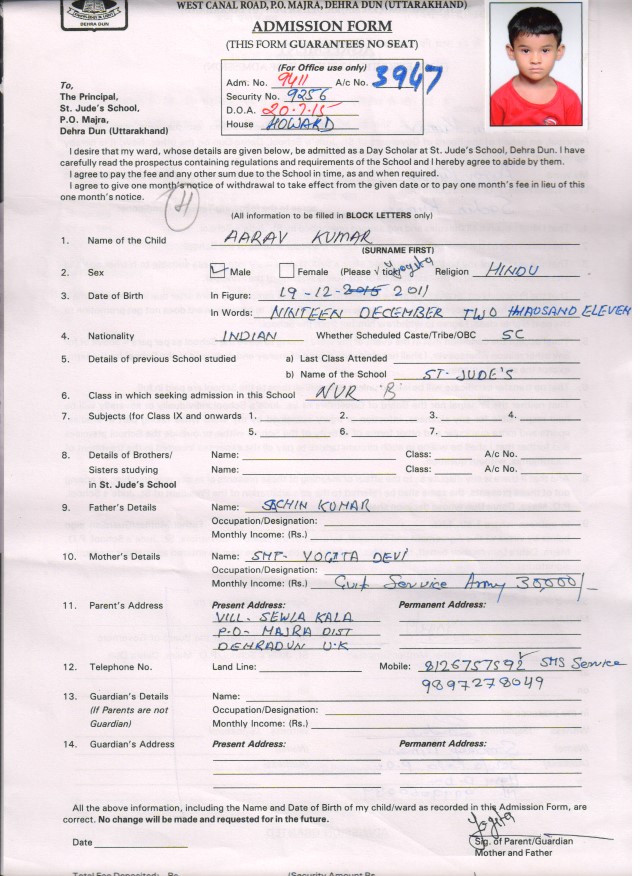 DEHRA DUN
WEST CANAL ROAD, P.O. MAJRA, DEHRA DUN (UTTARAKHAND)
ADMISSION FORM
(THIS FORM GUARANTEES NO SEAT)
(For Office use only)
Adm. No. 9411 A/c No. 3947
Security No. 9256
D.O.A. 20-7-15
House HOWARD
To,
The Principal,
St. Jude's School,
P.O. Majra,
Dehra Dun (Uttarakhand)
I desire that my ward, whose details are given below, be admitted as a Day Scholar at St. Jude's School, Dehra Dun. I have
carefully read the prospectus containing regulations and requirements of the School and I hereby agree to abide by them.
I agree to pay the fee and any other sum due to the School in time, as and when required.
I agree to give one month's notice of withdrawal to take effect from the given date or to pay one month's fee in lieu of this
one month's notice.
(All information to be filled in BLOCK LETTERS only)
1. Name of the Child AARAV KUMAR
(SURNAME FIRST)
2. Sex Male Female (Please √ tick) Yogita Religion HINDU
3. Date of Birth In Figure: 19-12-2015 2011
In Words: NINTEEN DECEMBER TWO THAOSAND ELEVEN
4. Nationality INDIAN Whether Scheduled Caste/Tribe/OBC SC
5. Details of previous School studied a) Last Class Attended
b) Name of the School ST. JUDE'S
6. Class in which seeking admission in this School NUR 'B'
7. Subjects (for Class IX and onwards 1. 2. 3. 4.
5. 6. 7.
8. Details of Brothers/ Name: Class: A/c No.
Sisters studying Name: Class: A/c No.
in St. Jude's School
9. Father's Details Name: SACHIN KUMAR
Occupation/Designation:
Monthly Income: (Rs.)
10. Mother's Details Name: SMT. YOGITA DEVI
Occupation/Designation:
Monthly Income: (Rs.) Service Army 30,000/-
11. Parent's Address Present Address: Permanent Address:
VILL- SEWLA KALA
P.O- MAJRA DIST
DEHRADUN U.K
12. Telephone No. Land Line: Mobile: 8126757592 SMS Service
9897278049
13. Guardian's Details Name:
(If Parents are not Occupation/Designation:
Guardian) Monthly Income: (Rs.)
14. Guardian's Address Present Address: Permanent Address:
All the above information, including the Name and Date of Birth of my child/ward as recorded in this Admission Form, are
correct. No change will be made and requested for in the future.
Yogita
Date Sig. of Parent/Guardian
Mother and Father
Total Fee Deposited: Rs. (Security Amount Rs.